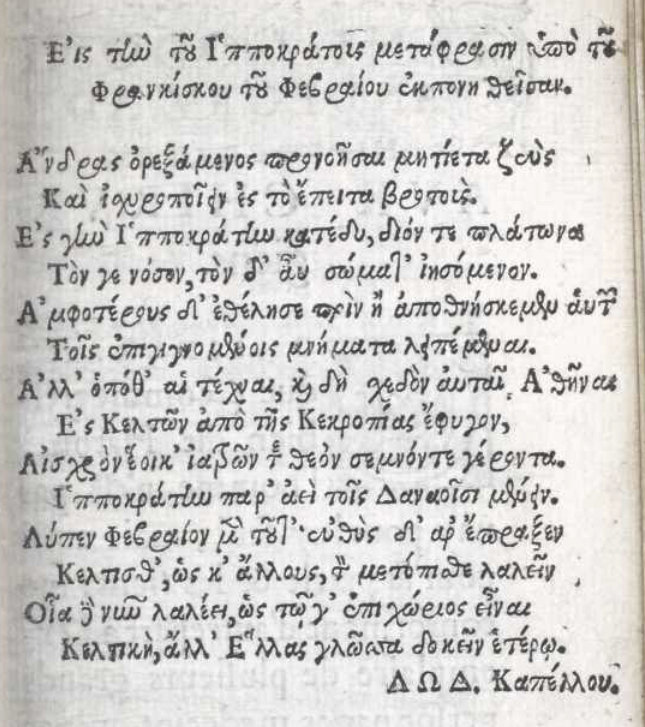 Εἰς τὴν τοῦ Ἱπποκράτοις μετάφρασιν ὑπὸ τοῦ
Φραγκίσκου τοῦ Φεβραίου ἐκπονηθεῖσαν.
Ἄνδρας ὀρεξάμενος προνοῆσαι μητίετα ζεὺς
Καὶ ἰχυροποῖειν ἐς τὸ ἔπειτα βροτοὶς.
Ἐς γῆν Ἱπποκράτην κατέδυ, διόν τε πλάτωνα
Τὸν γε νόσον, τὸν δ' αὖ σώματ' ἰησόμενον.
Ἀμφοτέρους δ' ἐθέλησε πρὶν ἢ ἀποθνήσκεμεν
Τοῖς ἐπιγιγνομένοις μνήματα λειπέμεναι.
Ἀλλ' ὁπόθ' αἱ τέχναι, καὶ δὴ χεδὸν ἀυταῖ Ἀθῆναι
Ἐς Κελτῶν ἀπὸ τῆς Κεκροπίας ἔφυγον,
Αἰσχρὸν ἔοικ' θεὸν σεμνόντε γέροντα.
Ἱπποκράτην παρ' ἀεὶ τοῖς Δαναοῖσι μένειν.
Λύπεν Φεβραίον μὲν τοῦτ' εὐθὺς δ' αρ' ἔπραξεν
Κελτισθ', ὡς κ' ἄλλους, λαλεῖν
Οἷα νιῦ λαλέει, ὡς τῷ γ' ἐπιχώριος εἶναι
Κελτικὴ, ἄλλ' Ἕλλας γλῶττα δοκεῖν ἑτέρῳ.
ΔΩΔ. Καπέλλου.